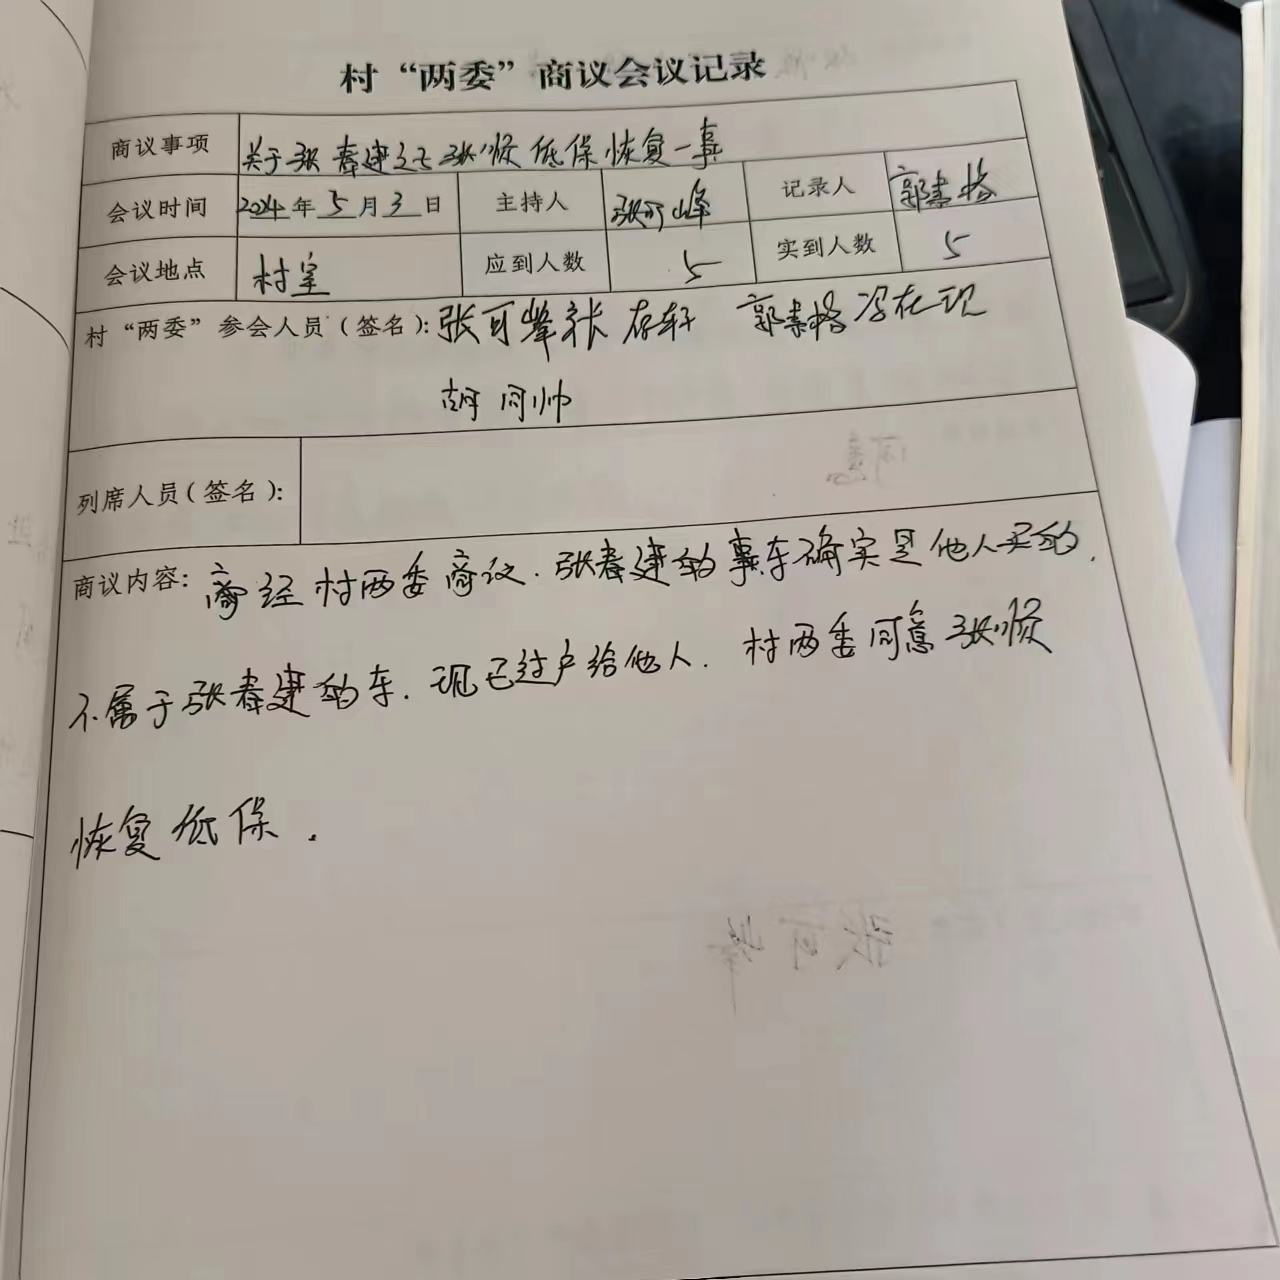 村“两委”商议会议记录
商议事项 关于张春建之子张顺低保恢复一事
会议时间 2024年5月3日 主持人 张可峰 记录人 郭素格
会议地点 村室 应到人数 5 实到人数 5
村“两委”参会人员(签名): 张可峰 张存轩 郭素格 冯在现
胡同帅
列席人员(签名):
商议内容: 经村两委商议.张春建的轿车确实是他人买的.
不属于张春建的车.现已过户给他人.村两委同意张顺
恢复低保.